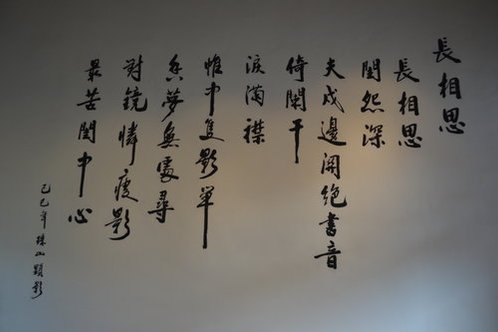 長相思
長相思
閨怨深
夫戍邊關絕書音
倚闌干
淚滿襟
帷中隻影單
夢無處尋
對鏡憐瘦影
最苦閨中心
己巳年珠山題影